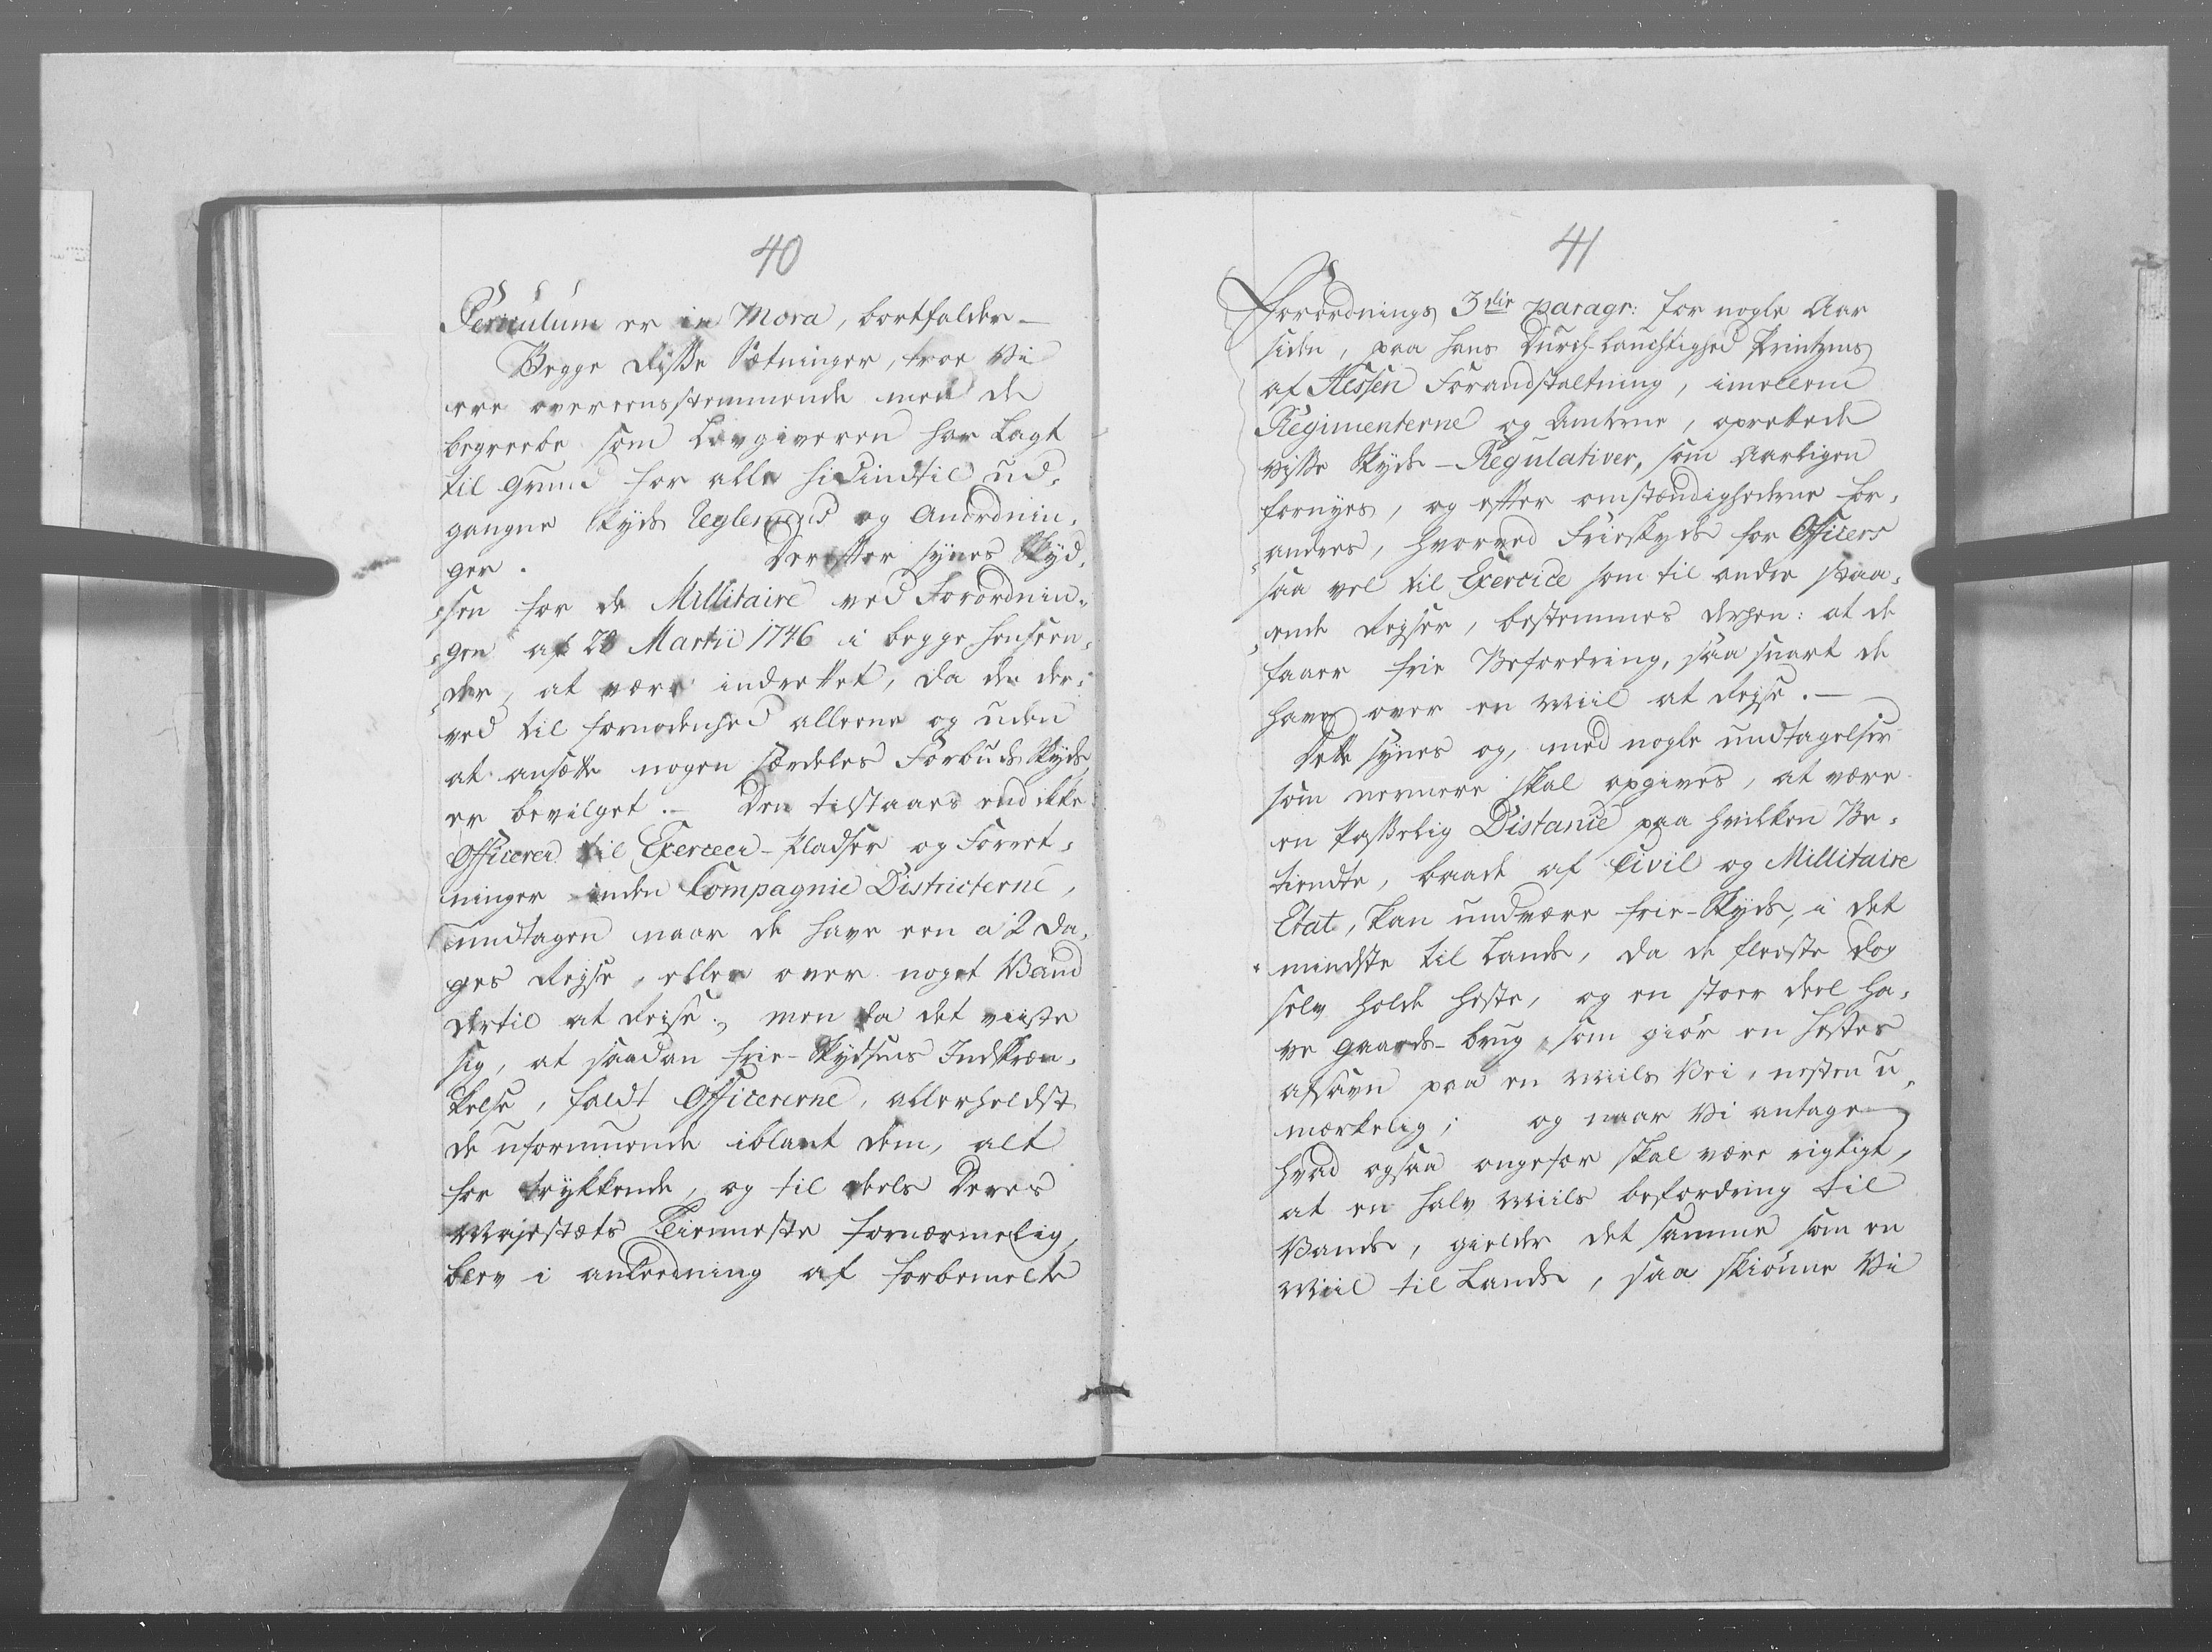 40
Periculum er in Mora, bortfalder —
Begge disse Sætninger, troe Vi
ere overeensstemmende med de
begreebe som Lovgiveren har Lagt
til Grund for alle hidindtil ud-
gangne Skyds Reglements og Anordnin-
ger. Derefter synes Skyd-
sen for de Millitaire ved Forordnin-
gen af 20 Martii 1746 i begge henseen-
der, at være indrettet, da den der-
ved til fornødenhed alleene og uden
at ansætte nogen særdeles Forbuds Skyds
er bevilget. — Den tilstaaes end ikke
Officerer til Exerceer-Pladser og Forret-
ninger inden Compagnie Districterne,
undtagen naar de have een a 2 Da-
ges Rejse, eller over noget Vand
dertil at Reise; men da det viiste
sig, at saadan frie-Skydses Indskræn-
kelse, faldt Officererne, allerheldst
de uformuende iblant dem, alt
for trykkende, og til deels Deres
Majestæts Tienneste fornærmelig,
blev i anledning af forbemelte
41
Forordnings 3die paragr: for nogle Aar
siden, paa Hans Durch-lauchtighed Printzens
af Hessen Forandstaltning, imellem
Regimenterne og Amterne, oprettede
visse Skyds-Regulativer, som Aarligen
fornyes, og efter omstændighederne for-
andres, hvorved Frieskyds for Officers
saa vel til Exercice som til andre paa-
ende Rejser, bestemmes derhen: at de
faaer frie Befordring, saa snart de
have over en Miil at Rejse. —
Dette synes og, med nogle undtagelser
som nermere skal opgives, at være
en Passelig Distance paa hvilken Be-
tiendte, baade af Civil og Millitaire
Etat, kan undvære frie-Skyds, i det
mindste til Lands, da de fleeste dog
selv holde Heste, og en stoer deel ha-
ve Gaards-brug, som giör en Hestes
afsavn paa en Miils Vei, nesten u-
mærkelig; og naar Vi antage
hvad ogsaa ongefær skal være rigtigt,
at en halv Miils befordring til
Vands, gielder det samme som en
Miil til Lands, saa skiönne Vi